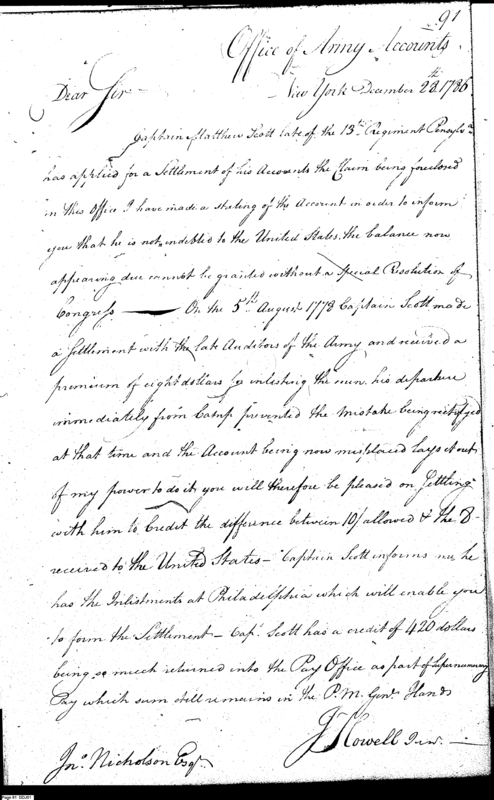 91
Office of Army Accounts
New York December 28th 1786
Dear Sir
Captain Matthew Scott late of the 13th Regiment Pensylva
has applied for a Settlement of his Accounts the Claim being foreclosed
in this Office I have made a stating of the Account in order to inform
you that he is not indebted to the United States, the balance now
appearing due cannot be granted without a Special Resolution of
Congress — On the 5th August 1778 Captain Scott made
a Settlement with the late Auditors of the Army and received a
premium of eight dollars for inlisting the men, his departure
immediately from Camp prevented the mistake being rectifyed
at that time and the Account being now misplaced lays it out
of my power to do it, you will therefore be pleased on Settling
with him to Credit the difference between 10/ allowed & the 8
received to the United States – Captain Scott informs me he
has the Inlistments at Philadelphia which will enable you
to form the Settlement – Capt. Scott has a credit of 420 dollars
being so much returned into the Pay Office as part of Supernumary
Pay which sum still remains in the P.M. Genl. Hands
Js Howell Jun.
Jno. Nicholson Esqr.
Page 91 DDJ61